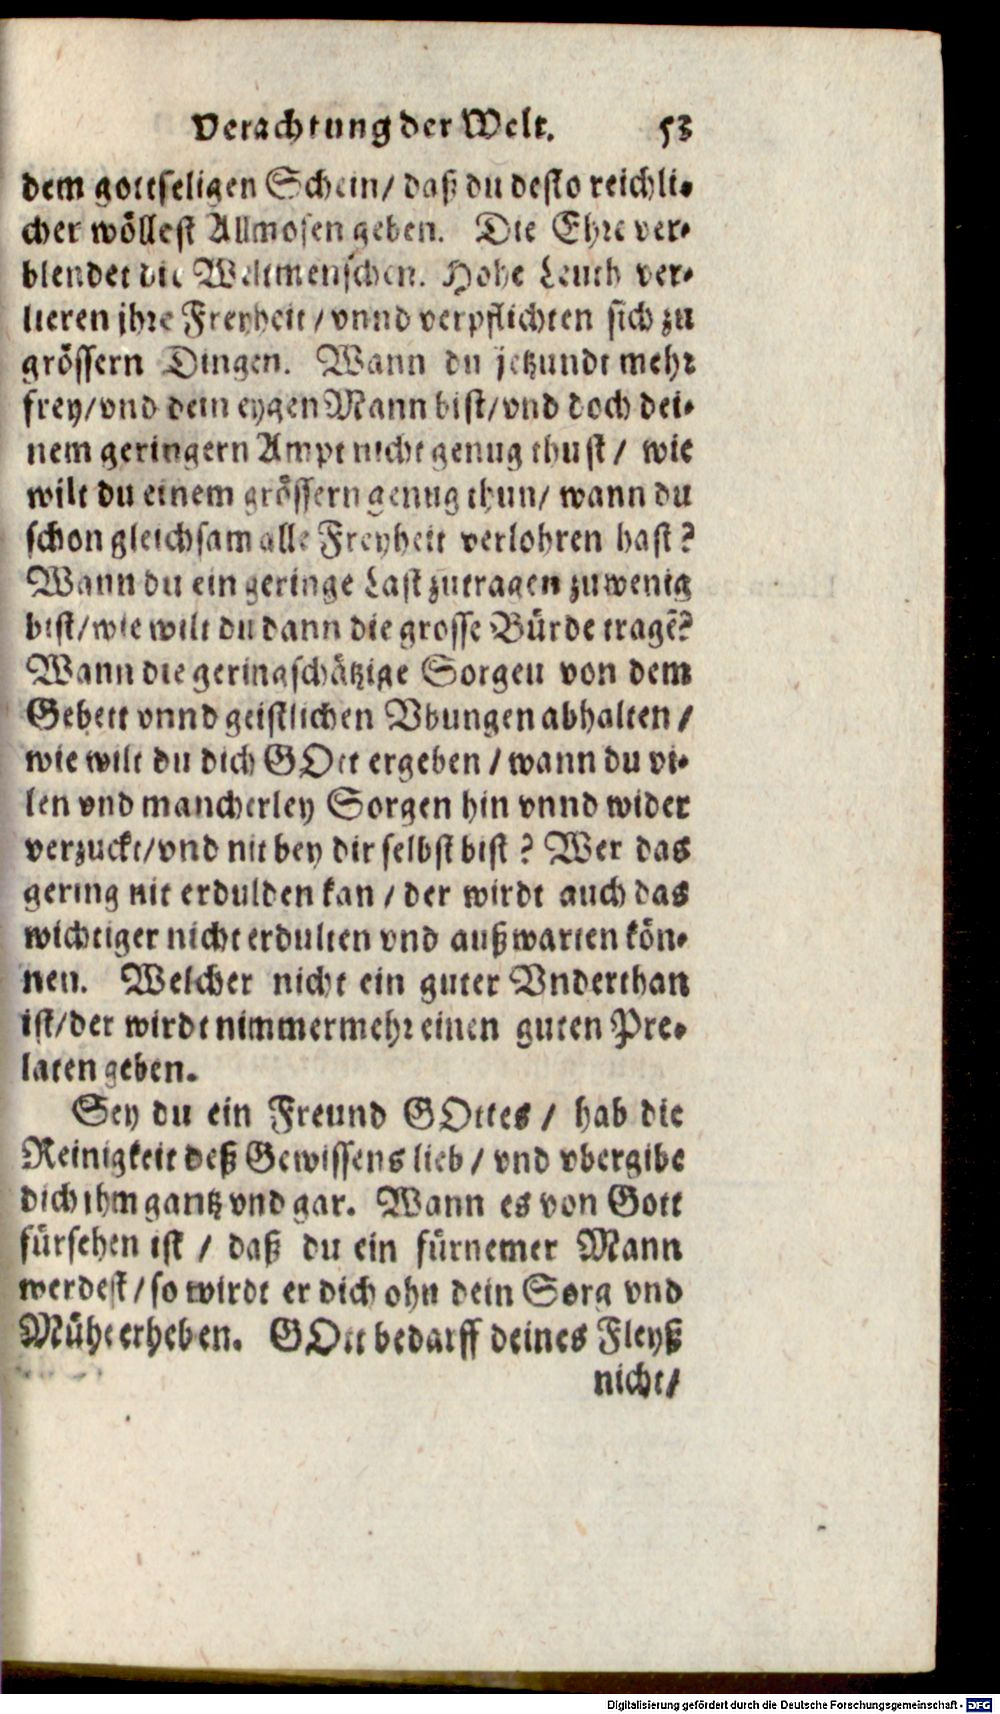 Verachtung der Welt. 53
dem gottseligen Schein/ daß du desto reichli-
cher wöllest Allmosen geben. Die Ehre ver-
blendet die Weltmenschen. Hohe Leuth ver-
lieren jhre Freyheit/ vnnd verpflichten sich zu
grössern Dingen. Wann du jetzundt mehr
frey/ vnd dein eygen Mann bist/ vnd doch dei-
nem geringern Ampt nicht genug thust/ wie
wilt du einem grössern genug thun/ wann du
schon gleichsam alle Freyheit verlohren hast?
Wann du ein geringe Last zutragen zuwenig
bist/ wie wilt du dann die grosse Bürde tragē?
Wann die geringschätzige Sorgen von dem
Gebett vnnd geistlichen Vbungen abhalten/
wie wilt du dich GOtt ergeben/ wann du vi-
len vnd mancherley Sorgen hin vnnd wider
verzuckt/ vnd nit bey dir selbst bist? Wer das
gering nit erdulden kan/ der wirdt auch das
wichtiger nicht erdulten vnd außwarten kön-
nen. Welcher nicht ein guter Vnderthan
ist/ der wirdt nimmermehr einen guten Pre-
laten geben.
Sey du ein Freund GOttes/ hab die
Reinigkeit deß Gewissens lieb/ vnd vbergibe
dich ihm gantz vnd gar. Wann es von Gott
fürsehen ist/ daß du ein fürnemer Mann
werdest/ so wirdt er dich ohn dein Sorg vnd
Mühe erheben. GOtt bedarff deines Fleyß
nicht/
Digitalisierung gefördert durch die Deutsche Forschungsgemeinschaft - DFG